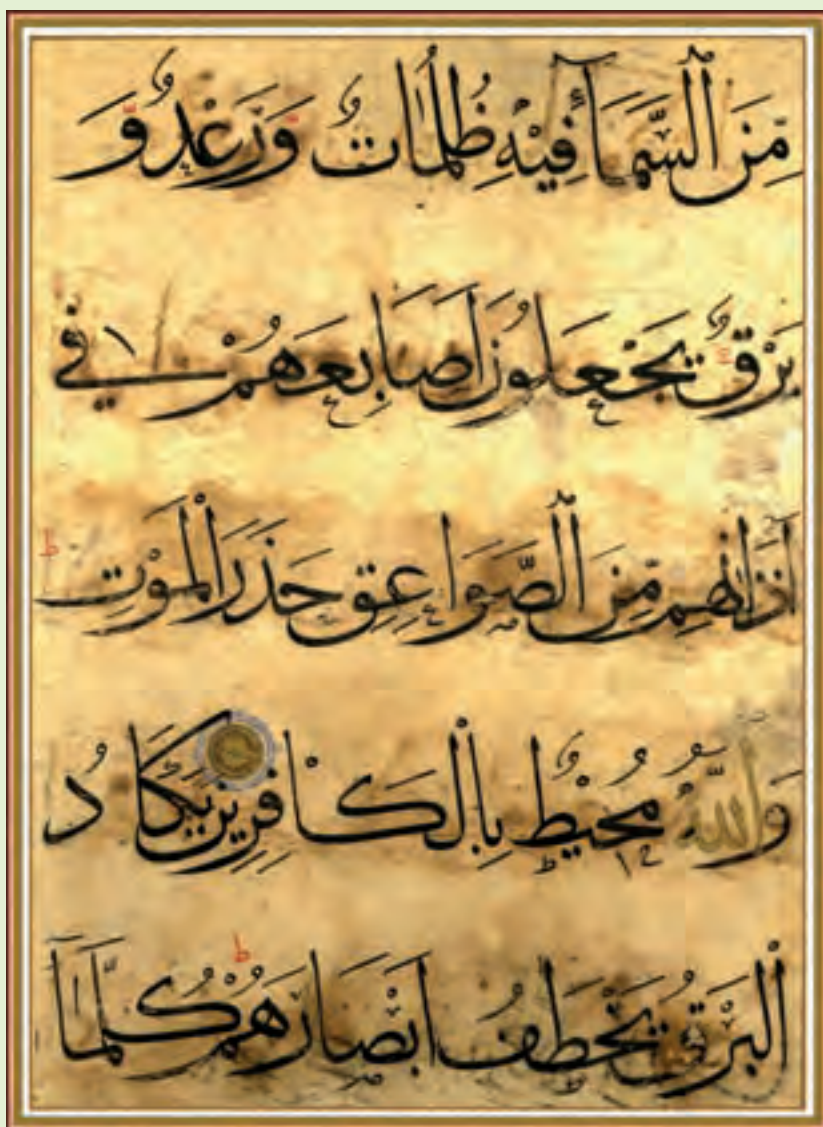 مِّنَ ٱلسَّمَآءِ فِيْهِ ظُلُمَاتٌ وَّرَعْدٌ وَّ
بَرْقٌ يَجْعَلُونَ اَصَابِعَهُمْ فِي
اٰذَانِهِم مِّنَ ٱلصَّوَاعِقِ حَذَرَ الْمَوْتِ ط
وَاللّٰهُ مُحِيْطٌ بِالْكَافِرِينَ يَكَادُ
الْبَرْقُ يَخْطَفُ اَبْصَارَهُمْ ط كُلَّمَآ